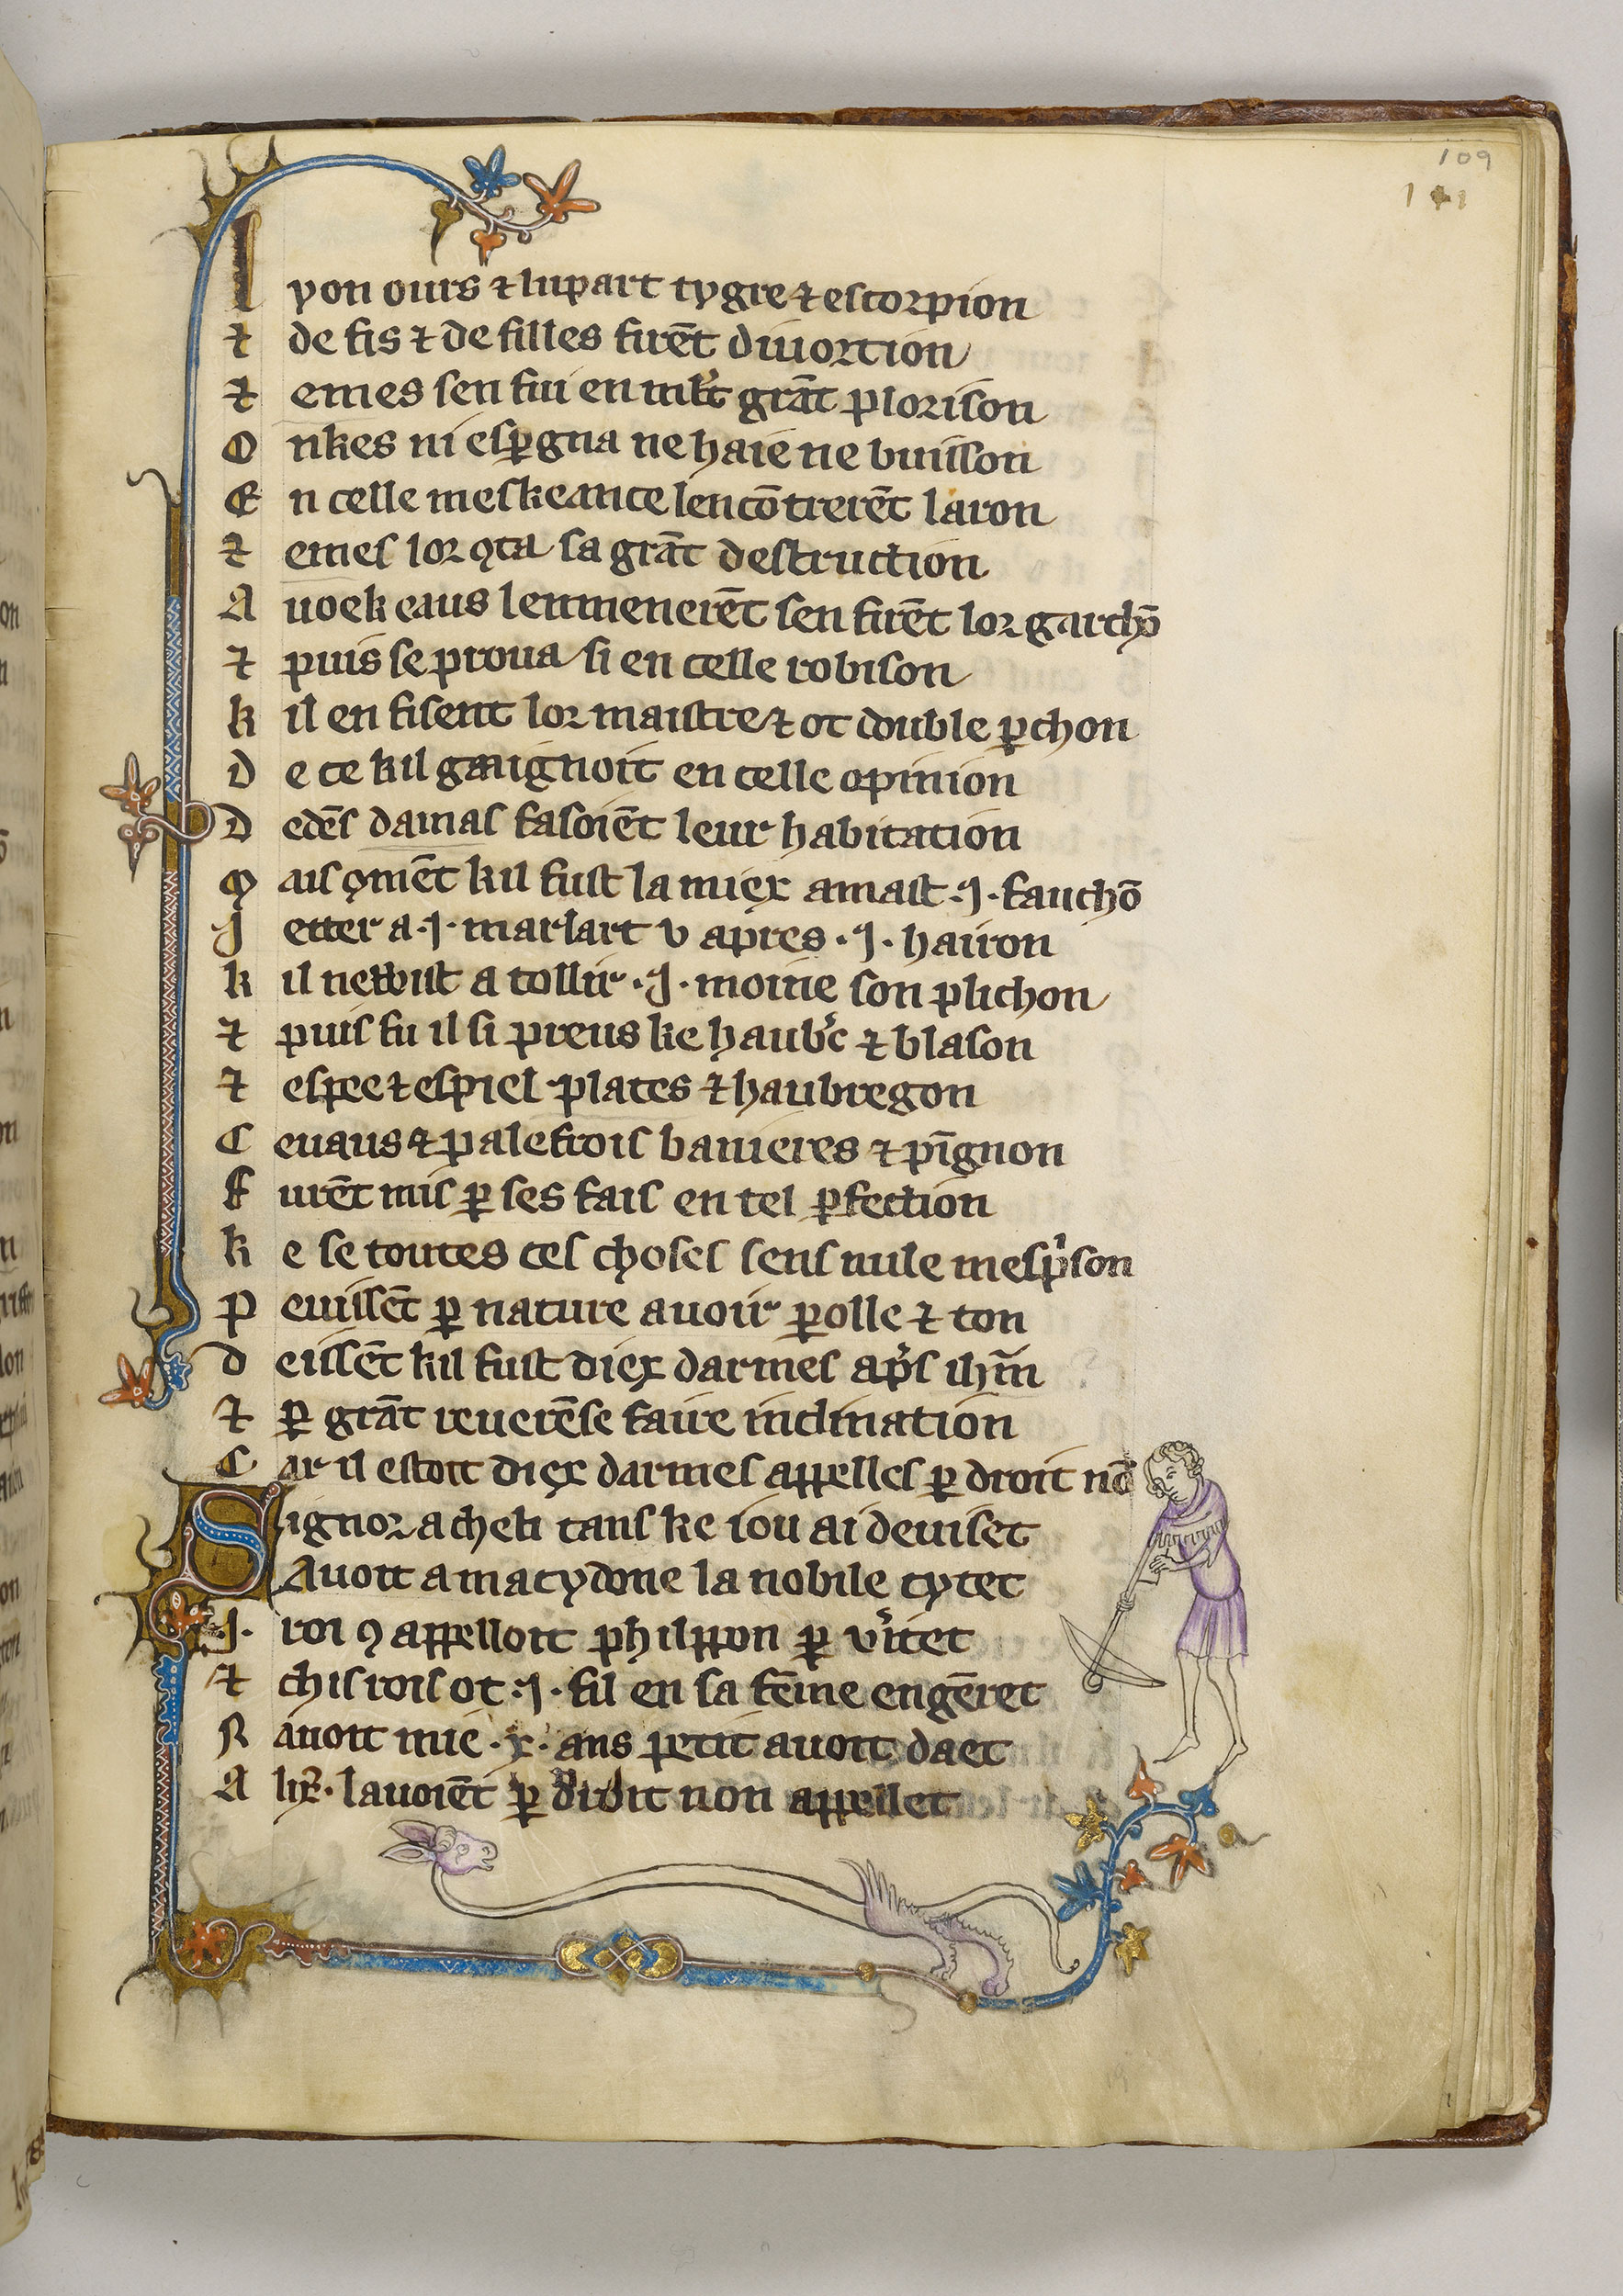 109
1 1
Lyon ours ⁊ lupart tygre ⁊ escorpion
⁊ de fis ⁊ de filles firēt diuortion
⁊ emes sen fui en ml't grāt plorison
Onkes ni esꝑgna ne haie ne buisson
En celle meskeance lencōtrerēt laron
⁊ emes lor ꝯta sa grāt destruction
Auoek eaus lenmenerēt sen firēt lor garchō
⁊ puis se proua si en celle robison
kil en fisent lor maistre ⁊ ot double ꝑchon
De ce kil gaaignoit en celle opinion
Dedēs damas fasoiēt leur habitation
Mais ꝯmēt kil fust la miex amast .J. fauchō
Jetter a .J. marlart v apres .J. hairon
kil ne fuist a tollir .J. moine son plichon
⁊ puis fu il si preus ke haub'c ⁊ blason
⁊ espee ⁊ espiel plates ⁊ haubregon
Ceuaus ⁊ palefrois banieres ⁊ pīgnon
Furēt mis ꝑ ses fais en tel ꝑfection
ke se toutes ces choses sens nule mesp'son
Peuissēt ꝑ nature auoir ꝑolle ⁊ ton
deissēt kil fust diex darmes ap's ihm̄
⁊ ꝑ grāt reuerēse faire inclination
Car il estoit diex darmes appelles ꝑ droit nō
Signor a cheli tans ke iou ai deuiset
Auoit a macydone la nobile cytet
.J. roi ꝯ appelloit philippon ꝑ v'itet
⁊ chis rois ot .J. fil en sa fēme engēret
Nauoit mie .x. ans petit auoit daet
Alix̄. lauoiēt ꝑ droit non appellet